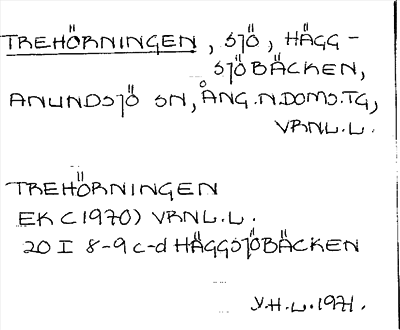 TREHÖRNINGEN, SJÖ, HÄGG-
SJÖBÄCKEN,
ANUNDSJÖ SN, ÅNG.N.DOMS.TG,
VRNL.L.
TREHÖRNINGEN
EK (1970) VRNL.L.
20 I 8-9 c-d HÄGGSJÖBÄCKEN
V.H.L.1971.